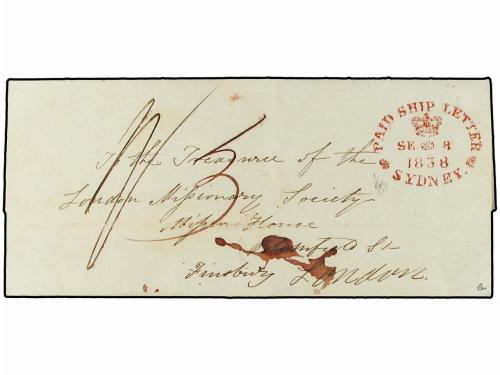 PAID SHIP LETTER
SE 8
1838
SYDNEY.
To the Treasurer of the
London Missionary Society
Mission House
Blomfield St
Finsbury London.
3